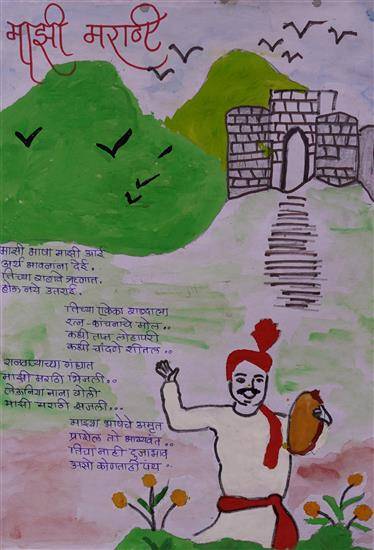 माझी मराठी
माझी भाषा माझी आई
अर्थ भावनांना देई.
तिच्या राहावे ऋणात.
होऊ नये उतराई.
तिच्या एकेका शब्दाला
रत्न-कांचनाचे मोल..
कधी तप्त लोहापरी
कधी चांदणे शीतल..
रानवाऱ्याच्या गंधात
माझी मराठी भिनली..
लेऊनिया नाना बोली
माझी मराठी सजली...
माझ्या भाषेचे अमृत
प्राशेल तो भाग्यवंत..
तिचा नाही दुजाभाव
असो कोणताही पंथ..